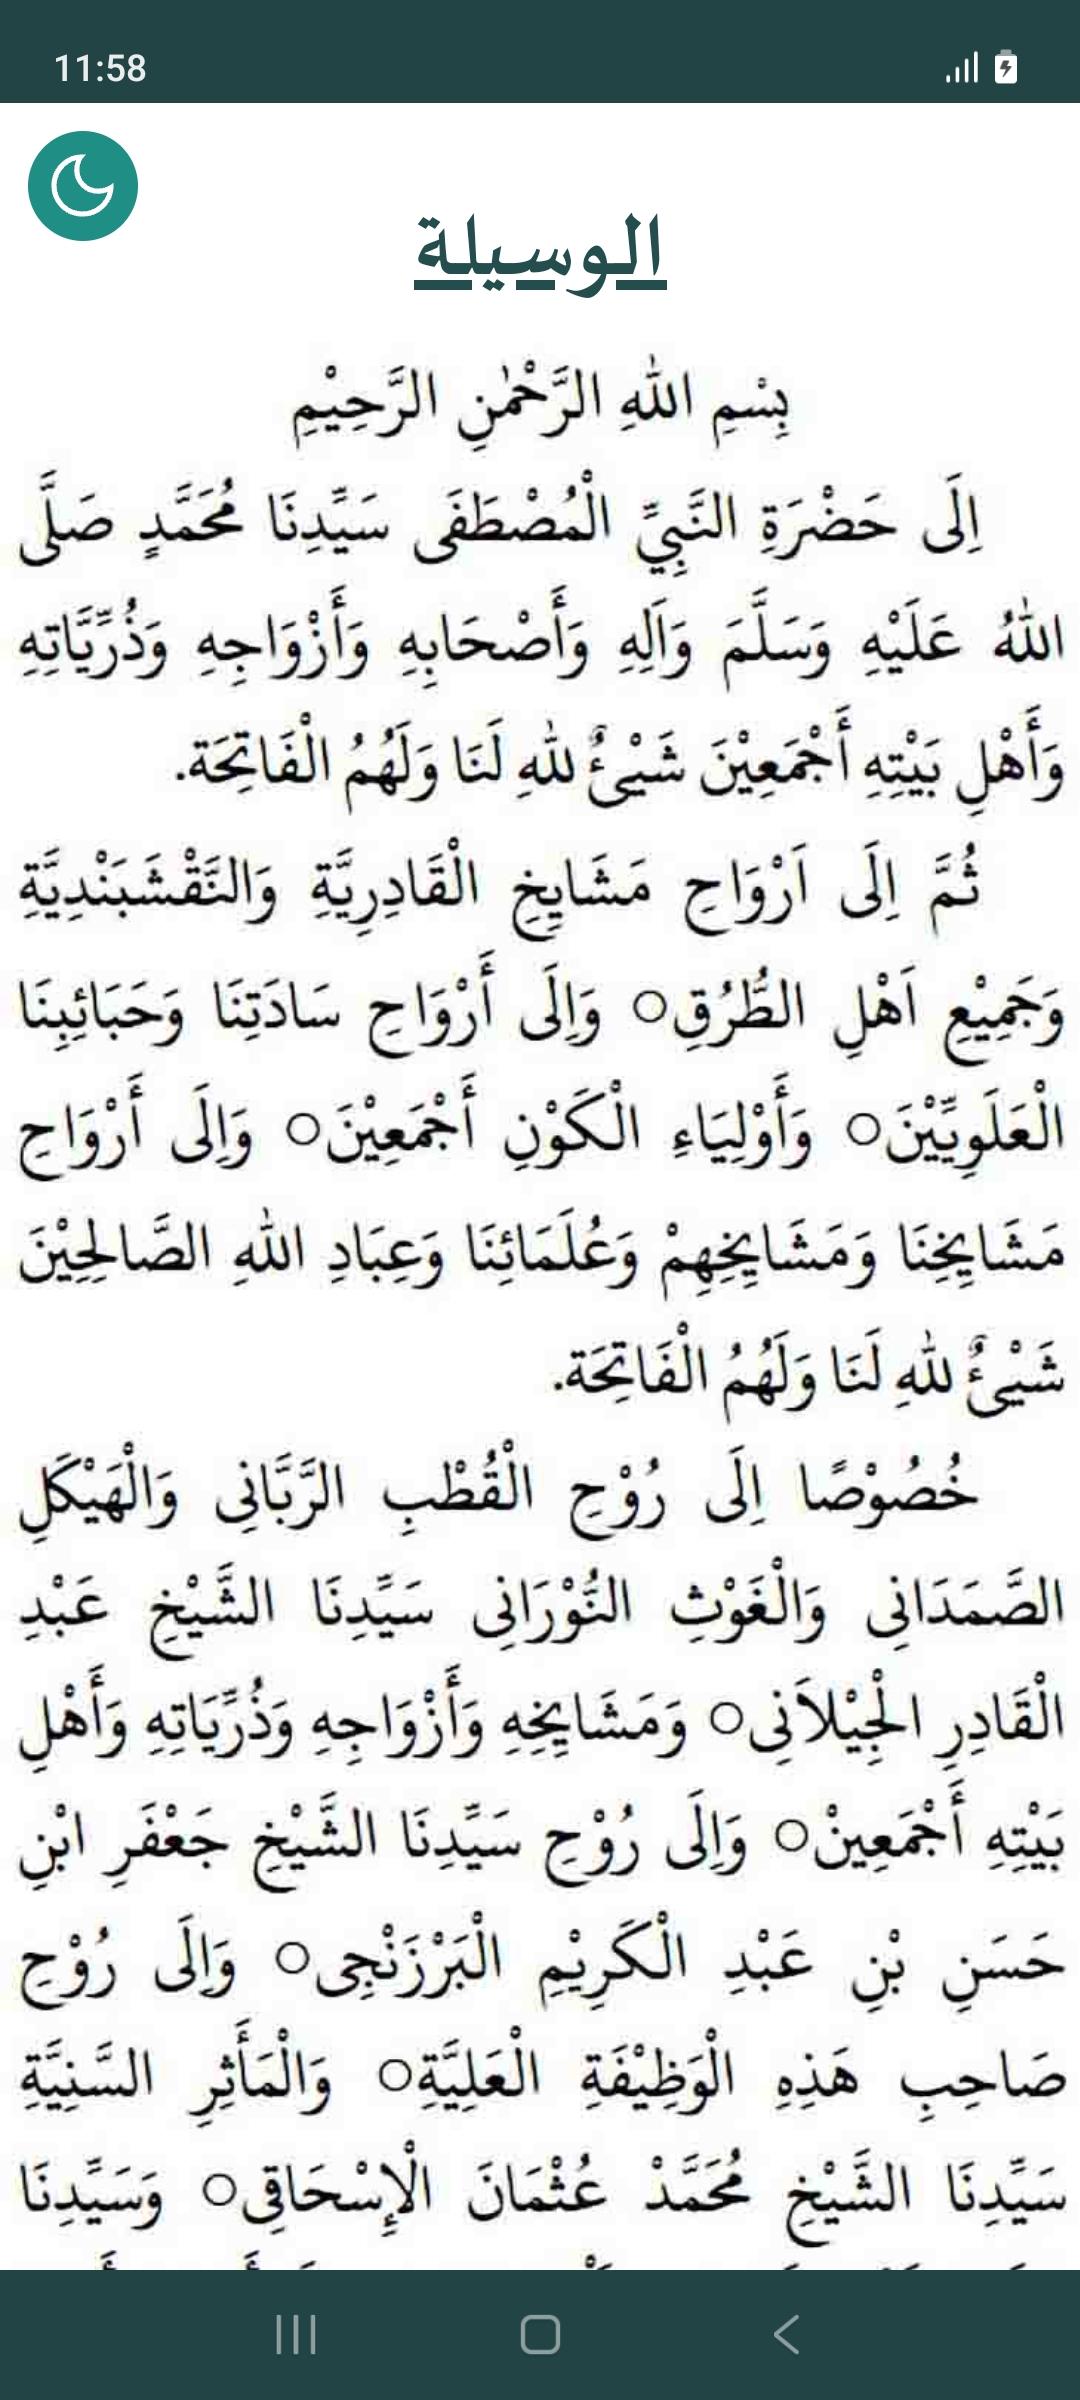 11:58
الوسيلة
بِسْمِ اللهِ الرَّحْمٰنِ الرَّحِيْمِ
اِلَى حَضْرَةِ النَّبِيِّ الْمُصْطَفَى سَيِّدِنَا مُحَمَّدٍ صَلَّى
اللهُ عَلَيْهِ وَسَلَّمَ وَاَلِهِ وَأَصْحَابِهِ وَأَزْوَاجِهِ وَذُرِّيَّاتِهِ
وَأَهْلِ بَيْتِهِ أَجْمَعِيْنَ شَيْئٌ لِلهِ لَنَا وَلَهُمُ الْفَاتِحَة.
ثُمَّ اِلَى اَرْوَاحِ مَشَايِخِ الْقَادِرِيَّةِ وَالنَّقْشَبَنْدِيَّةِ
وَجَمِيْعِ اَهْلِ الطُّرُقِ○ وَاِلَى أَرْوَاحِ سَادَتِنَا وَحَبَائِبِنَا
الْعَلَوِيِّيْنَ○ وَأَوْلِيَاءِ الْكَوْنِ أَجْمَعِيْنَ○ وَاِلَى أَرْوَاحِ
مَشَايِخِنَا وَمَشَايِخِهِمْ وَعُلَمَائِنَا وَعِبَادِ اللهِ الصَّالِحِيْنَ
شَيْئٌ لِلهِ لَنَا وَلَهُمُ الْفَاتِحَة.
خُصُوْصًا اِلَى رُوْحِ الْقُطْبِ الرَّبَّانِى وَالْهَيْكَلِ
الصَّمَدَانِى وَالْغَوْثِ النُّوْرَانِى سَيِّدِنَا الشَّيْخِ عَبْدِ
الْقَادِرِ الْجِيْلاَنِى○ وَمَشَايِخِهِ وَأَزْوَاجِهِ وَذُرِّيَاتِهِ وَأَهْلِ
بَيْتِهِ أَجْمَعِيْنْ○ وَاِلَى رُوْحِ سَيِّدِنَا الشَّيْخِ جَعْفَرِ ابْنِ
حَسَنِ بْنِ عَبْدِ الْكَرِيْمِ الْبَرْزَنْجِى○ وَاِلَى رُوْحِ
صَاحِبِ هَذِهِ الْوَظِيْفَةِ الْعَلِيَّةِ○ وَالْمَأَثِرِ السَّنِيَّةِ
سَيِّدِنَا الشَّيْخِ مُحَمَّدْ عُثْمَانَ الْإِسْحَاقِى○ وَسَيِّدِنَا